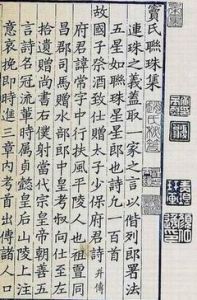 竇氏聯珠集
連珠之義蓋取一家之言以偕列郎署法
五星如聯珠星星郎也詩凡一百首
故國子祭酒致仕贈太子少保府君詩并傳
府君諱常字中行扶風平陵人也祖亶同
昌郡司馬贈水部郎中皇考叔向仕至左
拾遺贈尚書右僕射當代宗皇帝朝善五
言詩名冠流輩時屬貞懿皇后山陵上注
意哀挽即時進三章內考首出傳諸人口